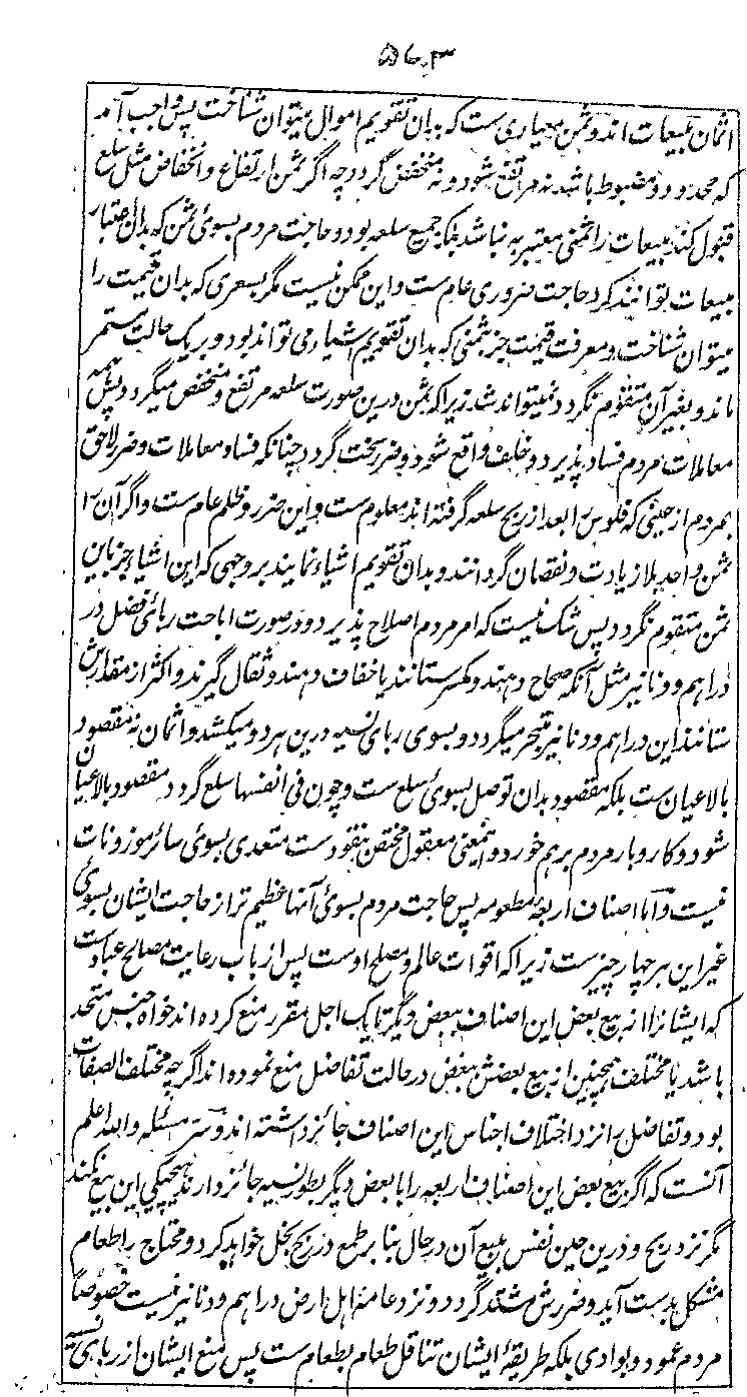 ۵۶۳
اثمان مبیعات اند و ثمن معیاری ست که بدان تقویم اموال میتوان شناخت پس واجب آمد
که محدود و مضبوط باشد نه مرتفع شود و نه منخفض گردد چه اگر ثمن ارتفاع و انخفاض مثل سلع
قبول کند مبیعات را ثمنی معتبر به نباشد بلکه جمیع سلعه بود و حاجت مردم بسوی ثمن که بدان اعتبار
مبیعات توانند کرد حاجت ضروری عام ست و این ممکن نیست مگر بسعری که بدان قیمت را
میتوان شناخت و معرفت قیمت جز بثمنی که بدان تقویم اشیا می تواند بود و بر یک حالت مستمر
ماند و بغیر آن متقوم نگردد نمیتواند شد زیرا که ثمن درین صورت سلعه مرتفع و منخفض میگردد پس همه
معاملات مردم فساد پذیرد و خلف واقع شود و ضرر سخت گردد چنانکه فساد معاملات و ضرر لاحق
بمردم از حینی که فلوس را بعد از ربح سلعه گرفته اند معلوم ست و این ضرر و ظلم عام ست و اگر آن را
ثمن واحد بلا زیادت و نقصان گردانند و بدان تقویم اشیاء نمایند بروجهی که این اشیا جز باین
ثمن متقوم نگردد پس شک نیست که امر مردم اصلاح پذیرد و در صورت اباحت ربای فضل در
دراهم و دنانیر مثل آنکه صحاح دهند و مکسر ستانند یا خفاف دهند و ثقال گیرند و اکثر از مقدارش
ستانند این دراهم و دنانیر متجر میگردد و بسوی ربای نسیه درین هر دو میکشد و اثمان نه مقصود
بالاعیان ست بلکه مقصود بدان توصل بسوی سلع ست و چون فی انفسها سلع گردد مقصود بالاعیان
شود و کاروبار مردم برهم خورد و این معنی معقول مختص بنقود ست متعدی بسوی سائر موزونات
نیست و اما اصناف اربعه مطعومه پس حاجت مردم بسوی آنها عظیم تر از حاجت ایشان بسوی
غیر این هر چهار چیز ست زیرا که اقوات عالم و مصلح اوست پس از باب رعایت مصالح عباد ست
که ایشانرا از بیع بعض این اصناف ببعض دیگر تا یک اجل مقرر منع کرده اند خواه جنس متحد
باشد یا مختلف همچنین از بیع بعضش ببعض در حالت تفاضل منع نموده اند اگرچه مختلف الصفات
بود و تفاضل را نزد اختلاف اجناس این اصناف جائز داشته اند و سر مسئله والله اعلم
آنست که اگر بیع بعض این اصناف اربعه را با بعض دیگر بطور نسیه جائز دارند هیچیکی این بیع نکند
مگر نزد ربح و درین حین نفس ببیع آن در حال بنا بر طمع در ربح بخل خواهد کرد و محتاج را طعام
مشکل بدست آید و ضررش مشتد گردد و نزد عامه اهل ارض دراهم و دنانیر نیست خصوصاً
مردم عمود و بوادی بلکه طریقهٔ ایشان تناقل طعام بطعام ست پس منع ایشان از ربای نسیه